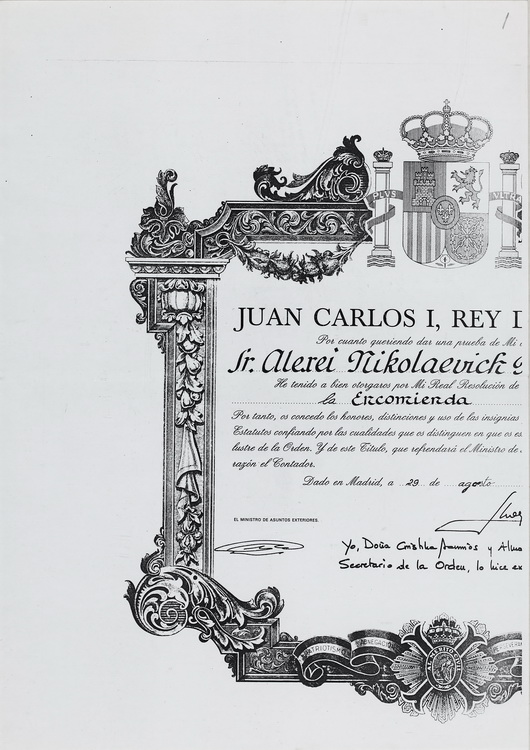 1
PLVS
JUAN CARLOS I, REY
Por cuanto queriendo dar una prueba de Mi
Sr. Alexei Nikolaevich
He tenido a bien otorgaros por Mi Real Resolución de
la Encomienda
Por tanto, os concedo los honores, distinciones y uso de las insignias
Estatutos confiando por las cualidades que os distinguen en que os
lustre de la Orden. Y de este Título, que refrendará el Ministro de
razón el Contador.
Dado en Madrid, a 29 de agosto
EL MINISTRO DE ASUNTOS EXTERIORES.
Yo, Doña y
Secretario de la Orden, lo hice
PATRIOTISMO ABNEGACION